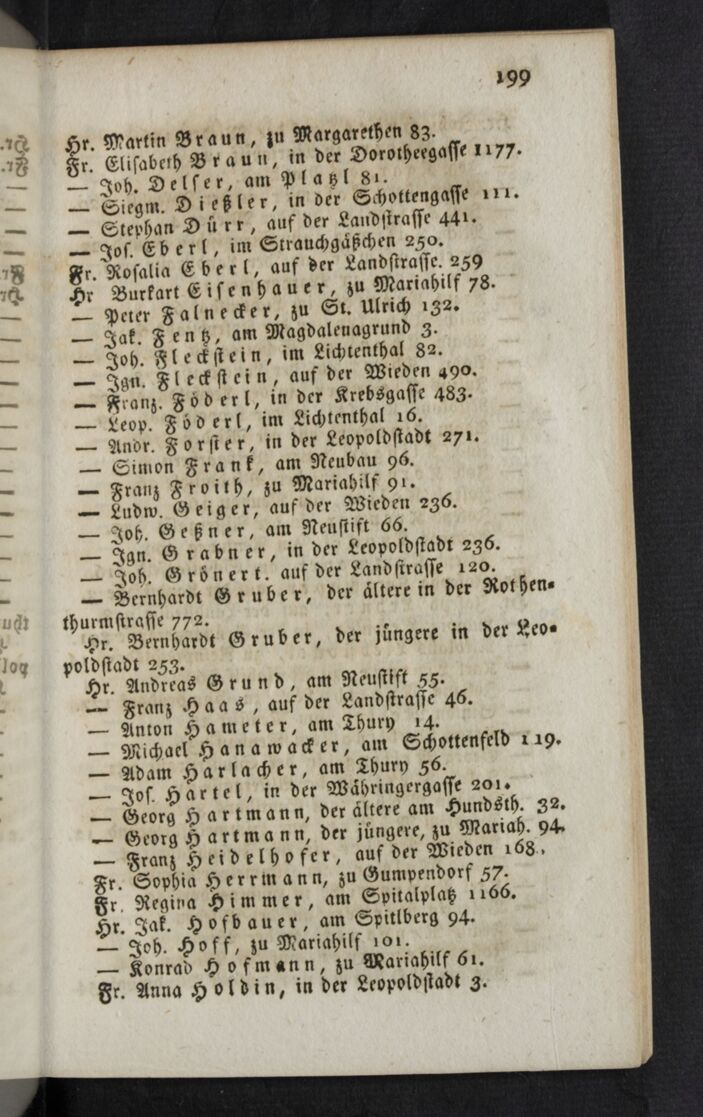 199
Hr. Martin Braun, zu Margarethen 83.
Fr. Elisabeth Braun, in der Dorotheegasse 1177.
— Joh. Delser, am Platzl 81.
— Siegm. Dießler, in der Schottengasse 111.
— Stephan Dürr, auf der Landstrasse 441.
— Jos. Eberl, im Strauchgäßchen 250.
Fr. Rosalia Eberl, auf der Landstrasse. 259
Hr Burkart Eisenhauer, zu Mariahilf 78.
— Peter Falnecker, zu St. Ulrich 132.
— Jak. Fentz, am Magdalenagrund 3.
— Joh. Fleckstein, im Lichtenthal 82.
— Ign. Fleckstein, auf der Wieden 490.
— Franz. Föderl, in der Krebsgasse 483.
— Leop. Föderl, im Lichtenthal 16.
— Andr. Forster, in der Leopoldstadt 271.
— Simon Frank, am Neubau 96.
— Franz Froith, zu Mariahilf 91.
— Ludw. Geiger, auf der Wieden 236.
— Joh. Geßner, am Neustift 66.
— Ign. Grabner, in der Leopoldstadt 236.
— Joh. Grönert. auf der Landstrasse 120.
— Bernhardt Gruber, der ältere in der Rothen-
thurmstrasse 772.
Hr. Bernhardt Gruber, der jüngere in der Leo-
poldstadt 253.
Hr. Andreas Grund, am Neustift 55.
— Franz Haas, auf der Landstrasse 46.
— Anton Hameter, am Thury 14.
— Michael Hanawacker, am Schottenfeld 119.
— Adam Harlacher, am Thury 56.
— Jos. Härtel, in der Währingergasse 201.
— Georg Hartmann, der ältere am Hundsth. 32.
— Georg Hartmann, der jüngere, zu Mariah. 94.
— Franz Heidelhofer, auf der Wieden 168.
Fr. Sophia Herrmann, zu Gumpendorf 57.
Fr. Regina Himmer, am Spitalplatz 1166.
Hr. Jak. Hofbauer, am Spitlberg 94.
— Joh. Hoff, zu Mariahilf 101.
— Konrad Hofmann, zu Mariahilf 61.
Fr. Anna Holdin, in der Leopoldstadt 3.